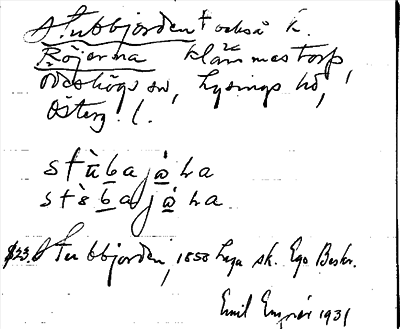 Stubbjorden + också k.
Röjerna klämmestorp,
Ödeshögs sn, Lysings hd,
Österg. l.
stùbajo̊ṇa
sts̀bajo̊ṇa
Stubbjorden, 1858 Laga sk. Ego Beskr.
Emil 1931